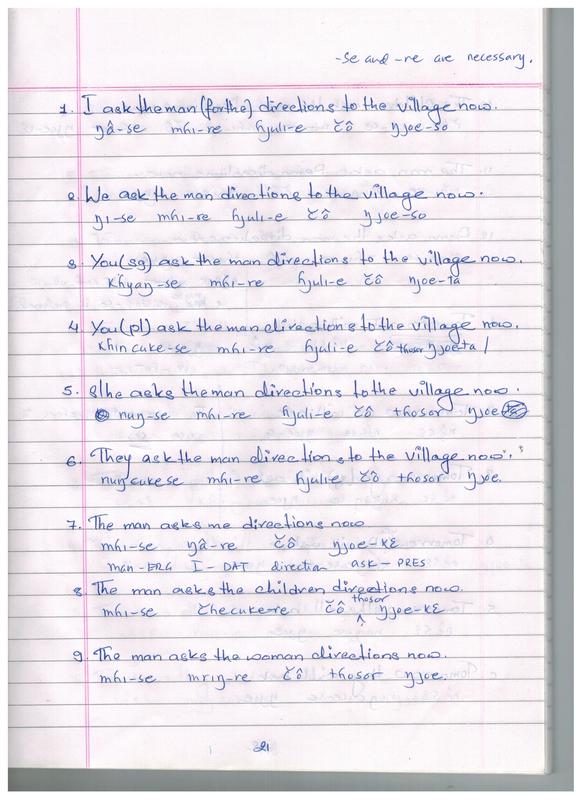 -se and -re are necessary.
1. I ask the man (for the) directions to the village now.
ŋâ-se mɦi-re ɦjuli-e čô ŋjoe-so
2. We ask the man directions to the village now.
ŋi-se mɦi-re ɦjuli-e čô ŋjoe-so
3. You (sg) ask the man directions to the village now.
khyaŋ-se mɦi-re ɦjuli-e čô ŋjoe-ta
4. You (pl) ask the man directions to the village now.
khin cuke-se mɦi-re ɦjuli-e čô thosor ŋjoe-ta /
5. S/he asks the man directions to the village now.
nuŋ-se mɦi-re ɦjuli-e čô thosor ŋjoe
6. They ask the man directions to the village now.
nuŋ cukese mɦi-re ɦjuli-e čô thosor ŋjoe.
7. The man asks me directions now
mɦi-se ŋâ-re čô ŋjoe-kɛ
man-ERG I-DAT direction ask-PRES
8. The man asks the children directions now.
mɦi-se čhecuke-re čô thosor ŋjoe-kɛ
9. The man asks the woman directions now.
mɦi-se mriŋ-re čô thosor ŋjoe.
21